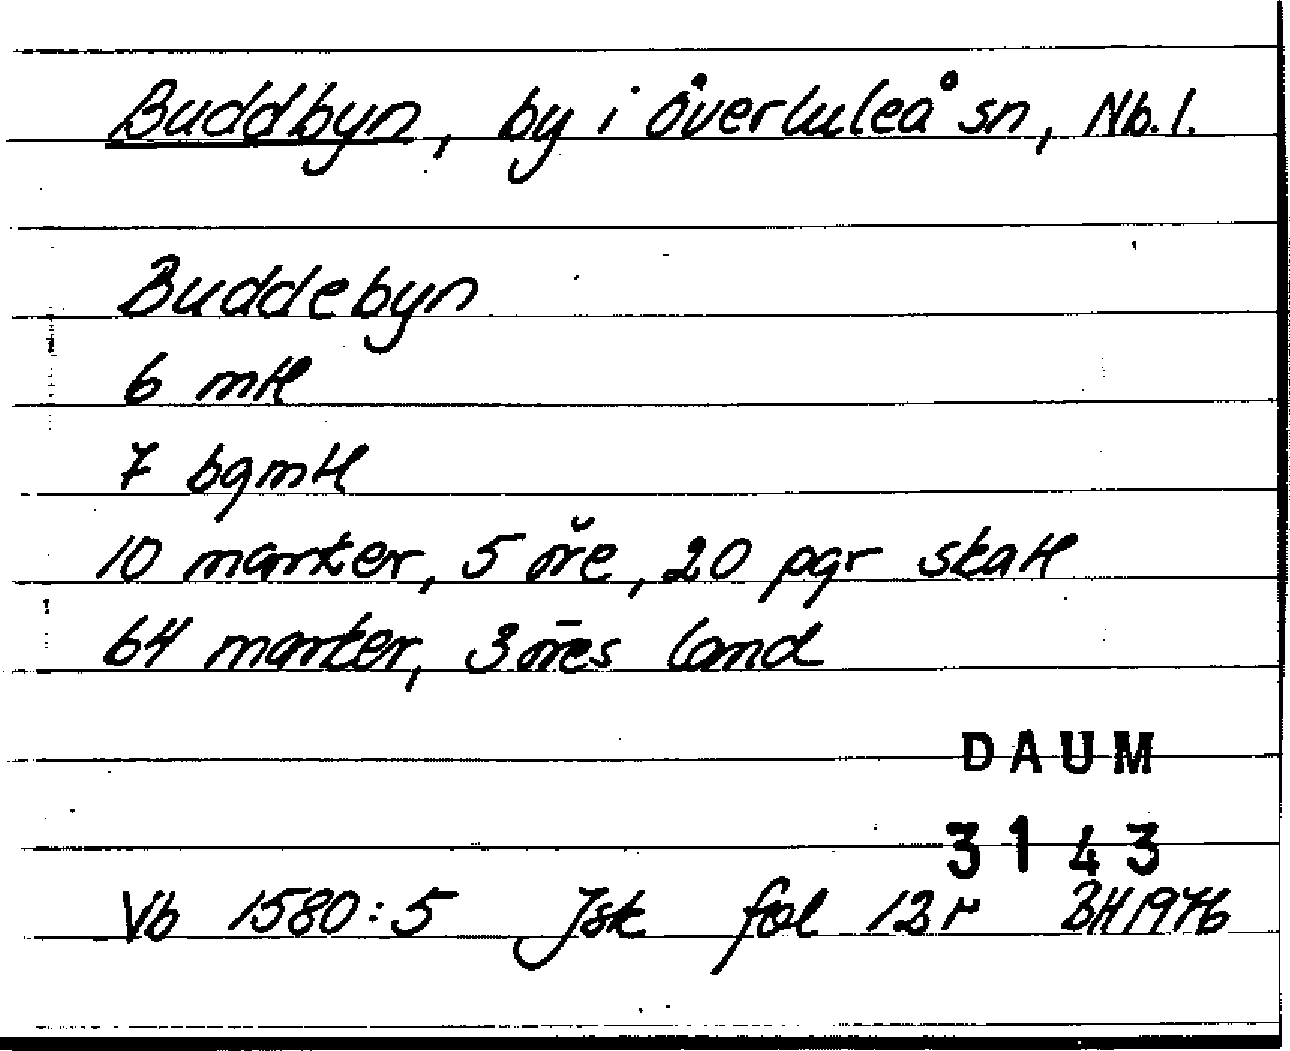 Buddbyn, by i överluleå sn, Nb. l.
Buddebyn
6 mtl
7 bgmtl
10 marker, 5 öre, 20 pgr skatt
64 marker, 3 öres land
DAUM
3143
Vb 1580:5 Jsk fol 12r BH1976